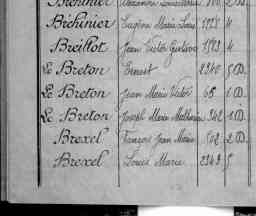 Bréhinier Eugène Marie Louis 1923 4
Breillot Jean Victor Gustave 1593 4
Le Breton Ernest 2340 5 D.
Le Breton Jean Marie Victor 65 1 D.
Le Breton Joseph Marie Mathurin 342 1 D.
Brexel François Jean Marie 502 2 D.
Brexel Louis Marie 2343 5